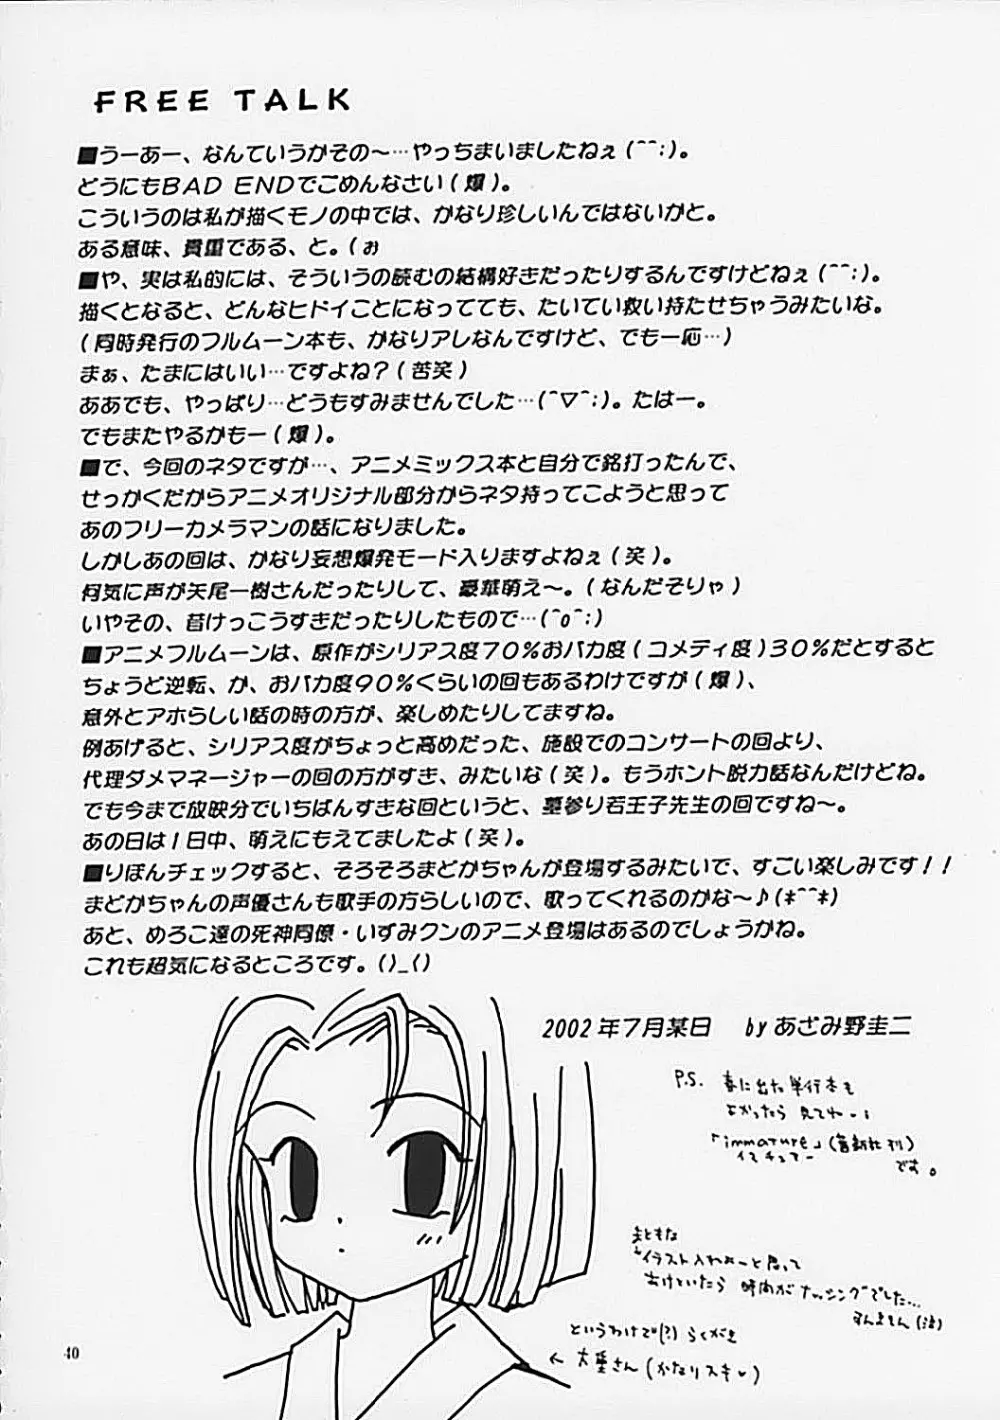 FREE TALK
■うーあー、なんていうかその〜…やっちまいましたねぇ(^^;)。
どうにもBAD ENDでごめんなさい(爆)。
こういうのは私が描くモノの中では、かなり珍しいんではないかと。
ある意味、貴重である、と。(ぉ
■や、実は私的には、そういうの読むの結構好きだったりするんですけどねぇ(^^;)。
描くとなると、どんなヒドイことになってても、たいてい救い持たせちゃうみたいな。
(同時発行のフルムーン本も、かなりアレなんですけど、でも一応…)
まぁ、たまにはいい…ですよね?(苦笑)
ああでも、やっぱり…どうもすみませんでした…(^▽^;)。たはー。
でもまたやるかもー(爆)。
■で、今回のネタですが…、アニメミックス本と自分で銘打ったんで、
せっかくだからアニメオリジナル部分からネタ持ってこようと思って
あのフリーカメラマンの話になりました。
しかしあの回は、かなり妄想爆発モード入りますよねぇ(笑)。
何気に声が矢尾一樹さんだったりして、豪華萌え〜。(なんだそりゃ)
いやその、昔けっこうすきだったりしたもので…(^o^;)
■アニメフルムーンは、原作がシリアス度70%おバカ度(コメディ度)30%だとすると
ちょうど逆転、か、おバカ度90%くらいの回もあるわけですが(爆)、
意外とアホらしい話の時の方が、楽しめたりしてますね。
例あげると、シリアス度がちょっと高めだった、施設でのコンサートの回より、
代理ダメマネージャーの回の方がすき、みたいな(笑)。もうホント脱力話なんだけどね。
でも今まで放映分でいちばんすきな回というと、墓参り若王子先生の回ですね〜。
あの日は1日中、萌えにもえてましたよ(笑)。
■りぼんチェックすると、そろそろまどかちゃんが登場するみたいで、すごい楽しみです!!
まどかちゃんの声優さんも歌手の方らしいので、歌ってくれるのかな〜♪(*^^*)
あと、めろこ達の死神同僚・いずみクンのアニメ登場はあるのでしょうかね。
これも超気になるところです。()_()
2002年7月某日 by あざみ野圭二
P.S. 春に出た単行本も
よかったら見てね-!
「immature」(富新社刊)
イマチュアー です。
まともな
イラスト入れよーと思って
あけといたら 時間がナッシングでした…
すんません(泣)
というわけで(?) らくがき
← 大重さん(かなりスキ♡)
40